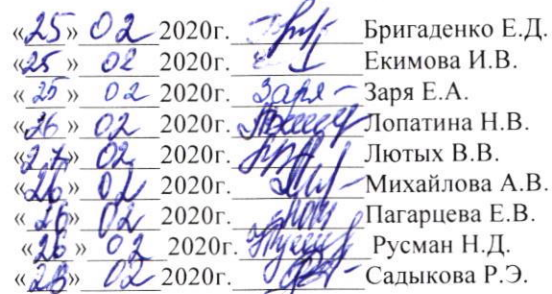 «25» 02 2020г. Бригаденко Е.Д.
«25» 02 2020г. Екимова И.В.
«25» 02 2020г. Заря Заря Е.А.
«26» 02 2020г. Лопатина Н.В.
«27» 02 2020г. Лютых В.В.
«26» 02 2020г. Михайлова А.В.
«26» 02 2020г. Пагарцева Е.В.
«26» 02 2020г. Русман Н.Д.
«28» 02 2020г. Садыкова Р.Э.